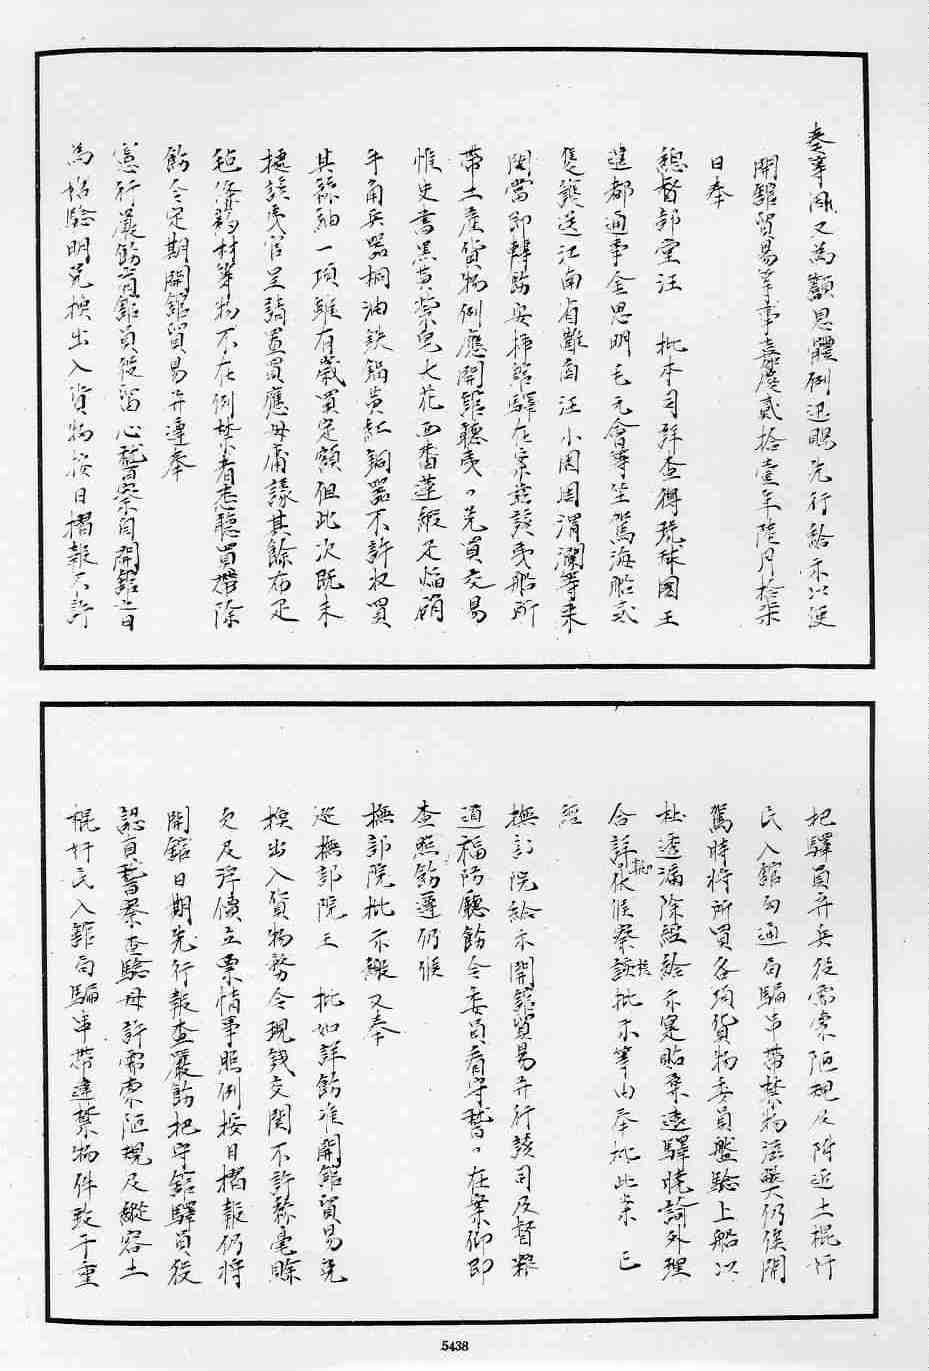 奉宰湘又為籲恩體例迅賜先行給示以便
開舘貿易等事嘉慶貳拾壹年陸月拾柒
日奉
總督部堂汪　批本司詳查得琉球國王
進都通事金思明毛元會等坐駕海船弍
隻護送江南省難商汪小園周渭瀾等來
閩當即轉飭安揷舘驛在案茲該夷船所
帶土產貨物例應開舘聽夷〻先買交易
惟史書黑黄紫皂大花西番蓮緞疋焰硝
牛角兵器桐油鉄鍋黄紅銅器不許收買
其絲紬一項雖有歲買定額但此次既未
據該夷官呈請置買應毋庸議其餘布疋
毡條药材等物不在例禁者悉聽買攜除
飭令定期開舘貿易并遵奉
憲行嚴飭看舘員役留心稽察自開舘之日
為始驗明兌換出入貨物按日摺報不許
把驛員弁兵役需索陋規及附近土棍奸
民入舘勾通局騙串帶禁物滋弊仍俟開
駕時將所買各項貨物委員盤驗上船以
杜透漏除經給示寔貼柔遠驛曉諭外理
合詳報伏候察核批示等由奉批此案已
經
撫部院給示開舘貿易并行該司及督糧
道福防廳飭令委員看守稽〻在案仰即
查照飭遵仍候
撫部院批示繳又奉
巡撫部院王　批如詳飭准開舘貿易兌
換出入貨物務令現錢交関不許絲毫賒
欠及浮價立票情事照例按日摺報仍將
開舘日期先行報查嚴飭把守舘驛員役
認真稽察查驗毋許需索陋規及縱容土
棍奸民入舘局騙串帶違禁物件致干重
5438